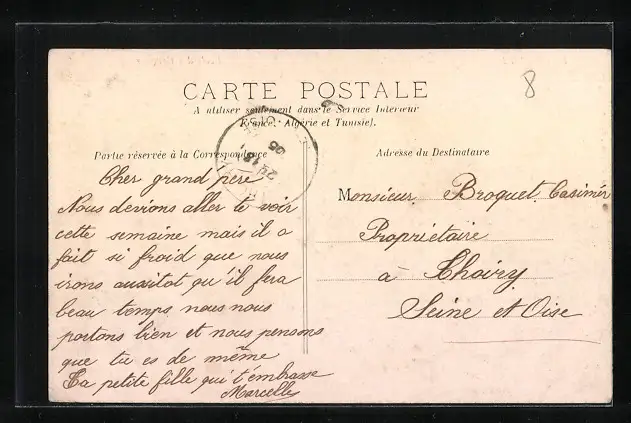 8
CARTE POSTALE
A utiliser seulement dans le Service Intérieur
France, Algérie et Tunisie).
Partie réservée à la Correspondance
Cher grand père
Nous devions aller te voir
cette semaine mais il a
fait si froid que nous
irons aussitot qu'il fera
beau temps nous nous
portons bien et nous pensons
que tu es de même
Ta petite fille qui t'embrasse
Marcelle
Adresse du Destinataire
Monsieur Broquet Casimir
Propriétaire
à Thoiry
Seine et Oise